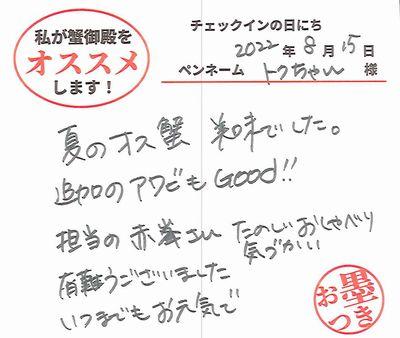 私が蟹御殿を
オススメ
します！
チェックインの日にち
2022年8月15日
ペンネーム トクちゃん 様
夏のオス蟹 美味でした。
追加のアワビもGood!!
担当の赤峯さん たのしいおしゃべり
気づかい
有難うございました
いつまでもお元気で
お墨つき